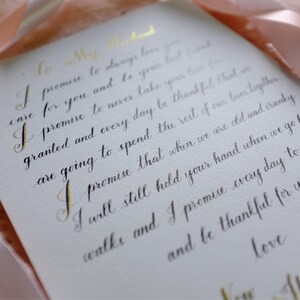 To My Husband
I promise to always love you
care for you and be your best friend
I promise to never take your love for
granted and every day be thankful that we
are going to spend the rest of our lives together
I promise that when we are old and cranky
I will still hold your hand when we go
walks and I promise every day to
and be thankful for
Love